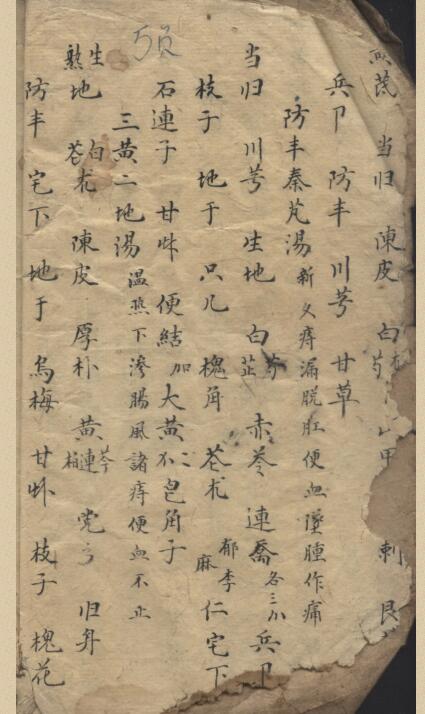 5頁
芪 当归 陳皮 白朮芍 甲 刺
兵卩 防丰 川芎 甘草
防丰秦艽湯 新久痔漏脱肛便血墜腫作痛
当归 川芎 生地 白芍芷 赤苓 連喬 各三分 兵卩
枝子 地于 只儿 槐角 苍朮 郁李麻仁 宅下
石連子 甘艸 便結加大黄 皂角子
三黄二地湯 温热下滲腸風諸痔便血不止
生熟地 白苍朮 陳皮 厚朴 黄芩連柏 党彡 归身
防丰 宅下 地于 烏梅 甘艸 枝子 槐花